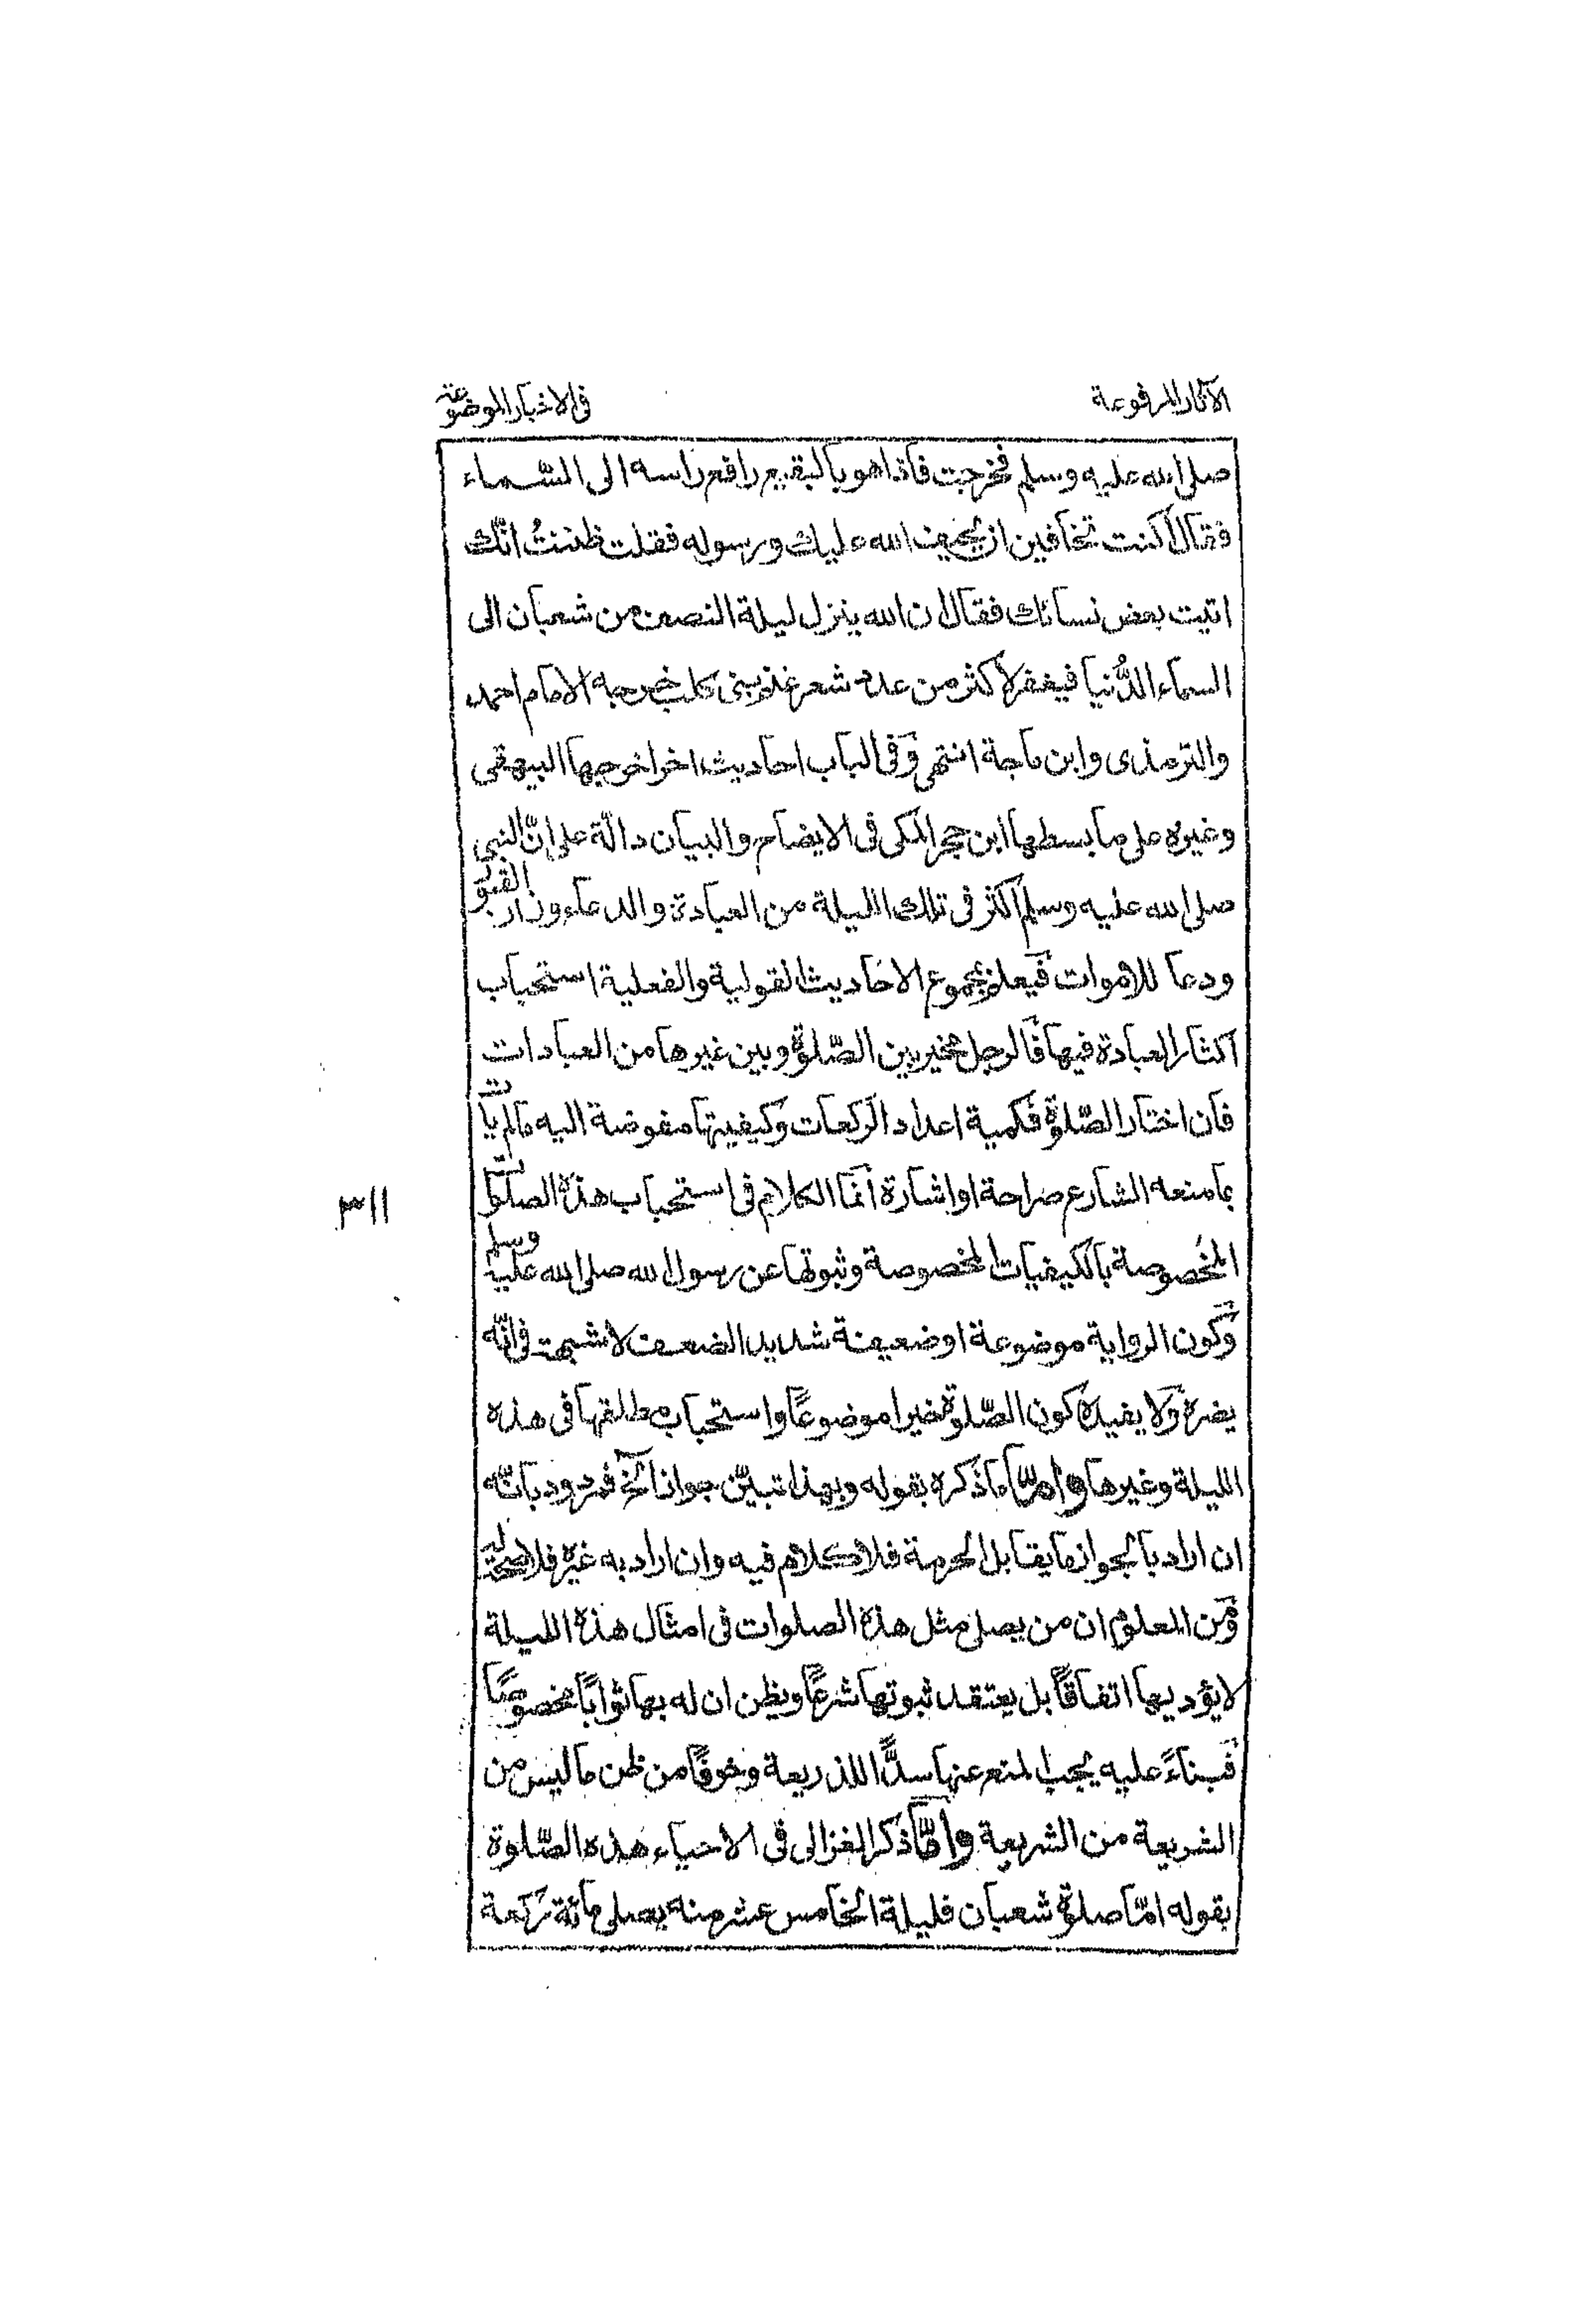 الآثار المرفوعة
فى الاخبار الموضوعة
صلى الله عليه وسلم فخرجت فاذا هو بالبقيع رافع راسه الى السّماء
فقال أكنت تخافين ان يحيف الله عليك ورسوله فقلت ظننتُ انّك
اتيت بعض نسائك فقال ان الله ينزل ليلة النصف من شعبان الى
السماء الدُّنيا فيغفر لاكثر من عدد شعر غنم بنى كلب خرجه الامام احمد
والترمذى وابن ماجة انتهى وفى الباب احاديث اخر اخرجها البيهقى
وغيره على ما بسطها ابن حجر المكى فى الايضاح والبيان دالّة على انّ النبى
صلى الله عليه وسلم اكثر فى تلك الليلة من العبادة والدعاء وزار القبور
ودعا للاموات فيعلم بمجموع الاحاديث القولية والفعلية استحباب
اكثار العبادة فيها فالرجل مخير بين الصّلوة وبين غيرها من العبادات
فان اختار الصّلوة فكمية اعداد الركعات وكيفيتها مفوضة اليه مالم يات
بما منعه الشارع صراحة او اشارة انما الكلام فى استحباب هذه الصلوات
المخصوصة بالكيفيات المخصوصة وثبوتها عن رسول الله صلى الله عليه وسلم
وكون الرواية موضوعة او ضعيفة شديد الضعف لا شبهة فى انّه
يضره ولا يفيده كون الصّلوة خيرا موضوعًا واستحباب مطلقها فى هذه
الليلة وغيرها وامّا ما ذكره بقوله وبهذا تبيّن جواز الخ فمردود بانّه
ان اراد بالجواز ما يقابل الحرمة فلا كلام فيه وان اراد به غيره فلا صحة له
ومن المعلوم ان من يصلى مثل هذه الصلوات فى امثال هذه الليلة
لا يؤديها اتفاقًا بل يعتقد ثبوتها شرعًا ويظن ان له بها ثوابًا مخصوصًا
فبناءً عليه يجب المنع عنها سدًّا للذريعة وخوفًا من ظن ما ليس من
الشريعة من الشريعة وامّا ذكر الغزالى فى الاحياء هذه الصّلوة
بقوله امّا صلوة شعبان فليلة الخامس عشر منه يصلى مائة ركعة
٣١١